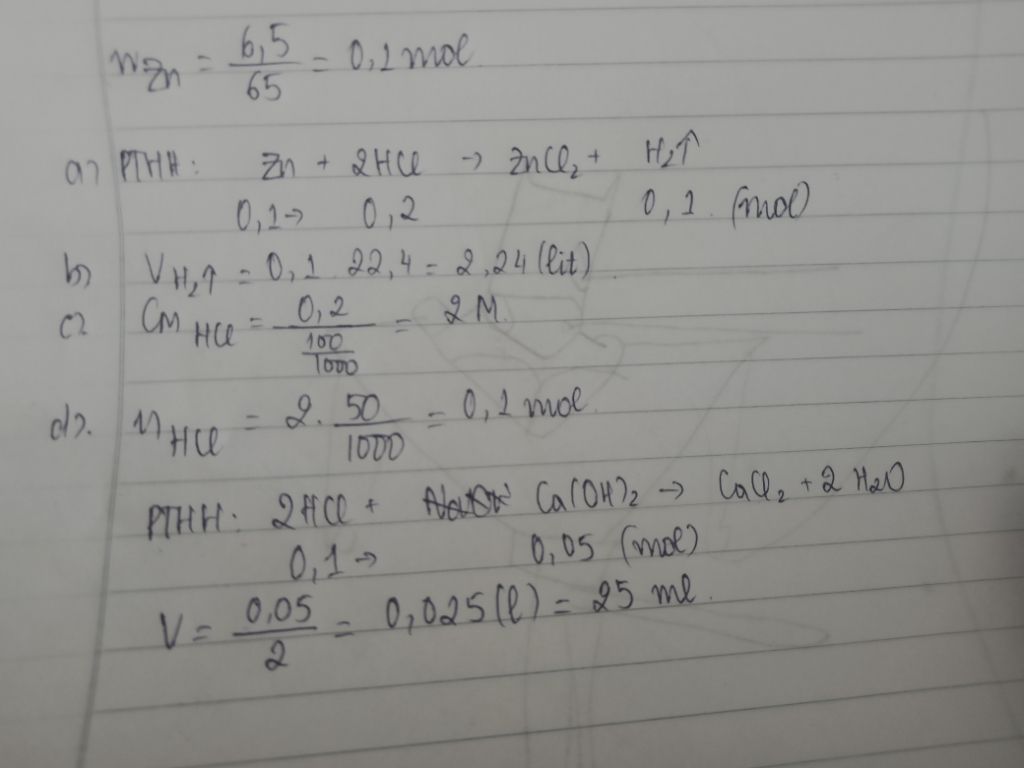 nZn = 6,5/65 = 0,1 mol
a) PTHH: Zn + 2HCl → ZnCl₂ + H₂↑
0,1→ 0,2 0,1 (mol)
b) VH₂↑ = 0,1 22,4 = 2,24 (lit)
c) CM HCl = 0,2/(100/1000) = 2 M.
d). nHCl = 2. 50/1000 = 0,1 mol.
PTHH: 2HCl + Ca(OH)₂ → CaCl₂ + 2 H₂O
0,1→ 0,05 (mol)
V = 0,05/2 = 0,025 (l) = 25 ml.